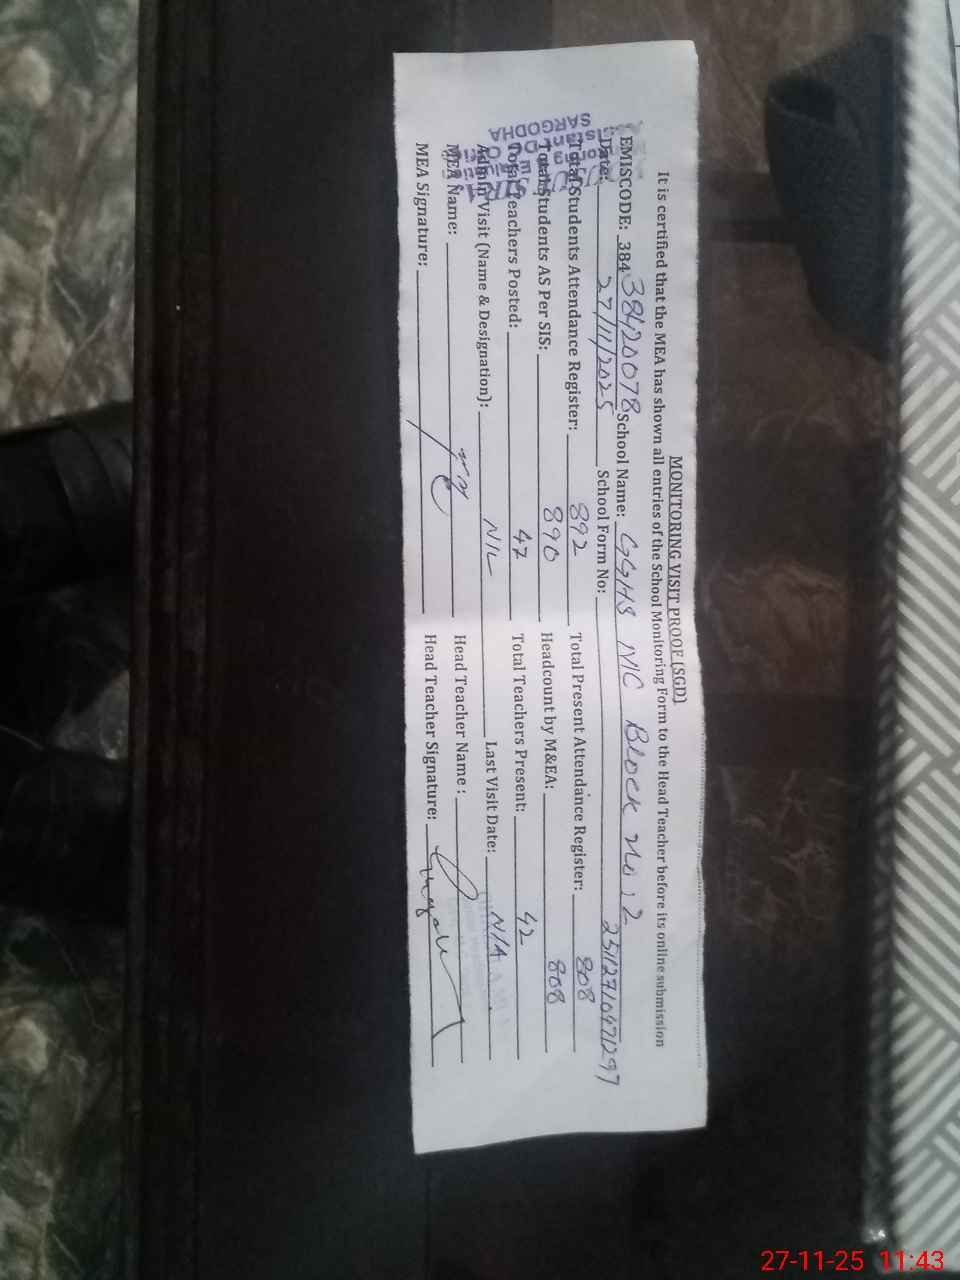 MONITORING VISIT PROOF (SGD)
It is certified that the MEA has shown all entries of the School Monitoring Form to the Head Teacher before its online submission
EMISCODE: 384 38420078 School Name: GGHS NIC Block No 12
Date: 27/11/2025 School Form No:
Total Students Attendance Register: 892 Total Present Attendance Register: 808
Total Students AS Per SIS: 890 Headcount by M&EA: 808
Total Teachers Posted: 47 Total Teachers Present: 42
Admin Visit (Name & Designation): NIL Last Visit Date: N/A
MEA Name: Head Teacher Name :
MEA Signature: Head Teacher Signature:
SARGODHA
27-11-25 11:43